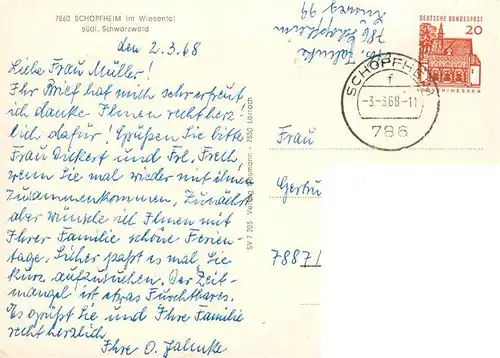 7860 SCHOPFHEIM im Wiesental
südl. Schwarzwald
den 2.3.68
Liebe Frau Müller!
Ihr Brief hat mich sehr erfreut,
ich danke Ihnen recht herz-
lich dafür! Grüßen Sie bitte
Frau Dükert und Frl. Frech,
wenn Sie mal wieder mit ihnen
zusammenkommen, Zunächst
aber wünsche ich Ihnen mit
Ihrer Familie schöne Ferien-
tage. Sicher paßt es mal, Sie
kurz aufzusuchen. Der Zeit-
mangel ist etwas Furchtbares.
Es grüßt Sie und Ihre Familie
recht herzlich
Ihre O. Jahnke
SV 7 205 Verlag Baumann · 7850 Lörrach
Jahnke
786 Schopfheim
99
DEUTSCHE BUNDESPOST
20
LORSCH/HESSEN
SCHOPFHEIM
f
-3.-3.68-11
786
Frau
Gertru
7887/